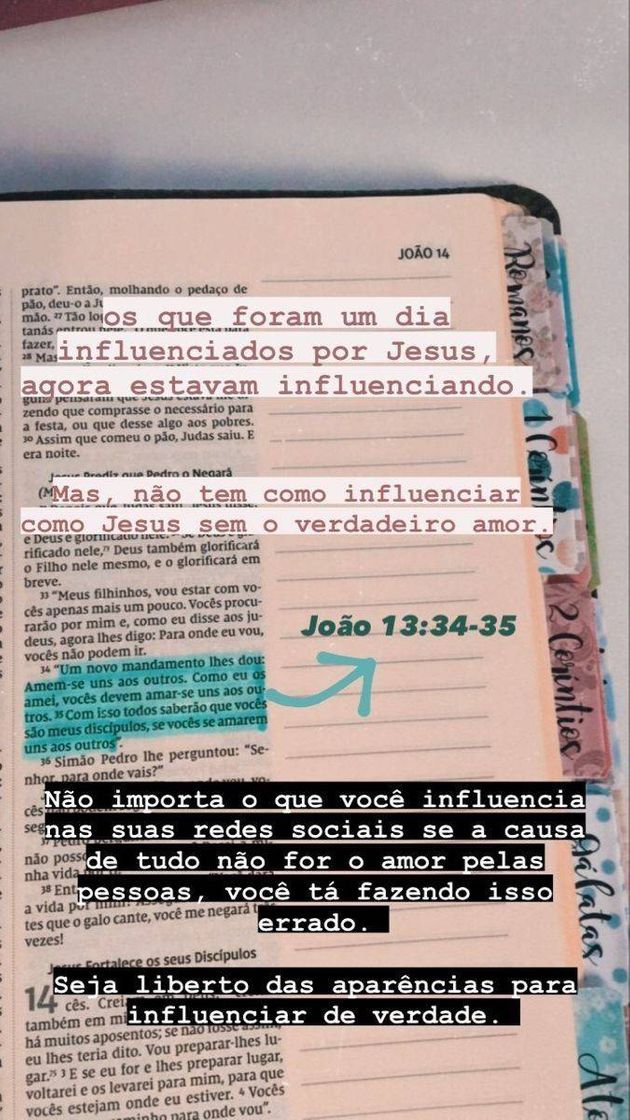 JOÃO 14
prato". Então, molhando o pedaço de
pão, deu-o a
mão. ²⁷ Tão
os que foram um dia
influenciados por Jesus,
agora estavam influenciando.
zendo que comprasse o necessário para
a festa, ou que desse algo aos pobres.
³⁰ Assim que comeu o pão, Judas saiu. E
era noite.
Jesus Prediz que Pedro o Negará
Mas, não tem como influenciar
como Jesus sem o verdadeiro amor.
rificado nele, Deus também glorificará
o Filho nele mesmo, e o glorificará em
breve.
³³ "Meus filhinhos, vou estar com vo-
cês apenas mais um pouco. Vocês procu-
rarão por mim e, como eu disse aos ju-
deus, agora lhes digo: Para onde eu vou,
vocês não podem ir.
João 13:34-35
³⁴ "Um novo mandamento lhes dou:
Amem-se uns aos outros. Como eu os
amei, vocês devem amar-se uns aos ou-
tros. ³⁵ Com isso todos saberão que vocês
são meus discípulos, se vocês se amarem
uns aos outros".
³⁶ Simão Pedro lhe perguntou: "Se-
nhor, para onde vais?"
Não importa o que você influencia
nas suas redes sociais se a causa
de tudo não for o amor pelas
pessoas, você tá fazendo isso
errado.
não
nha vida
³⁸
a vida por mim?
tes que o galo cante, você me negará
vezes!
Jesus Fortalece os seus Discípulos
Seja liberto das aparências para
influenciar de verdade.
14 cês.
também em
há muitos aposentos; se não fosse assim,
eu lhes teria dito. Vou preparar-lhes lu-
gar. ³ E se eu for e lhes preparar lugar,
voltarei e os levarei para mim, para que
vocês estejam onde eu estiver. ⁴ Vocês
caminho para onde vou".
Romanos
1 Coríntios
2 Coríntios
Gálatas